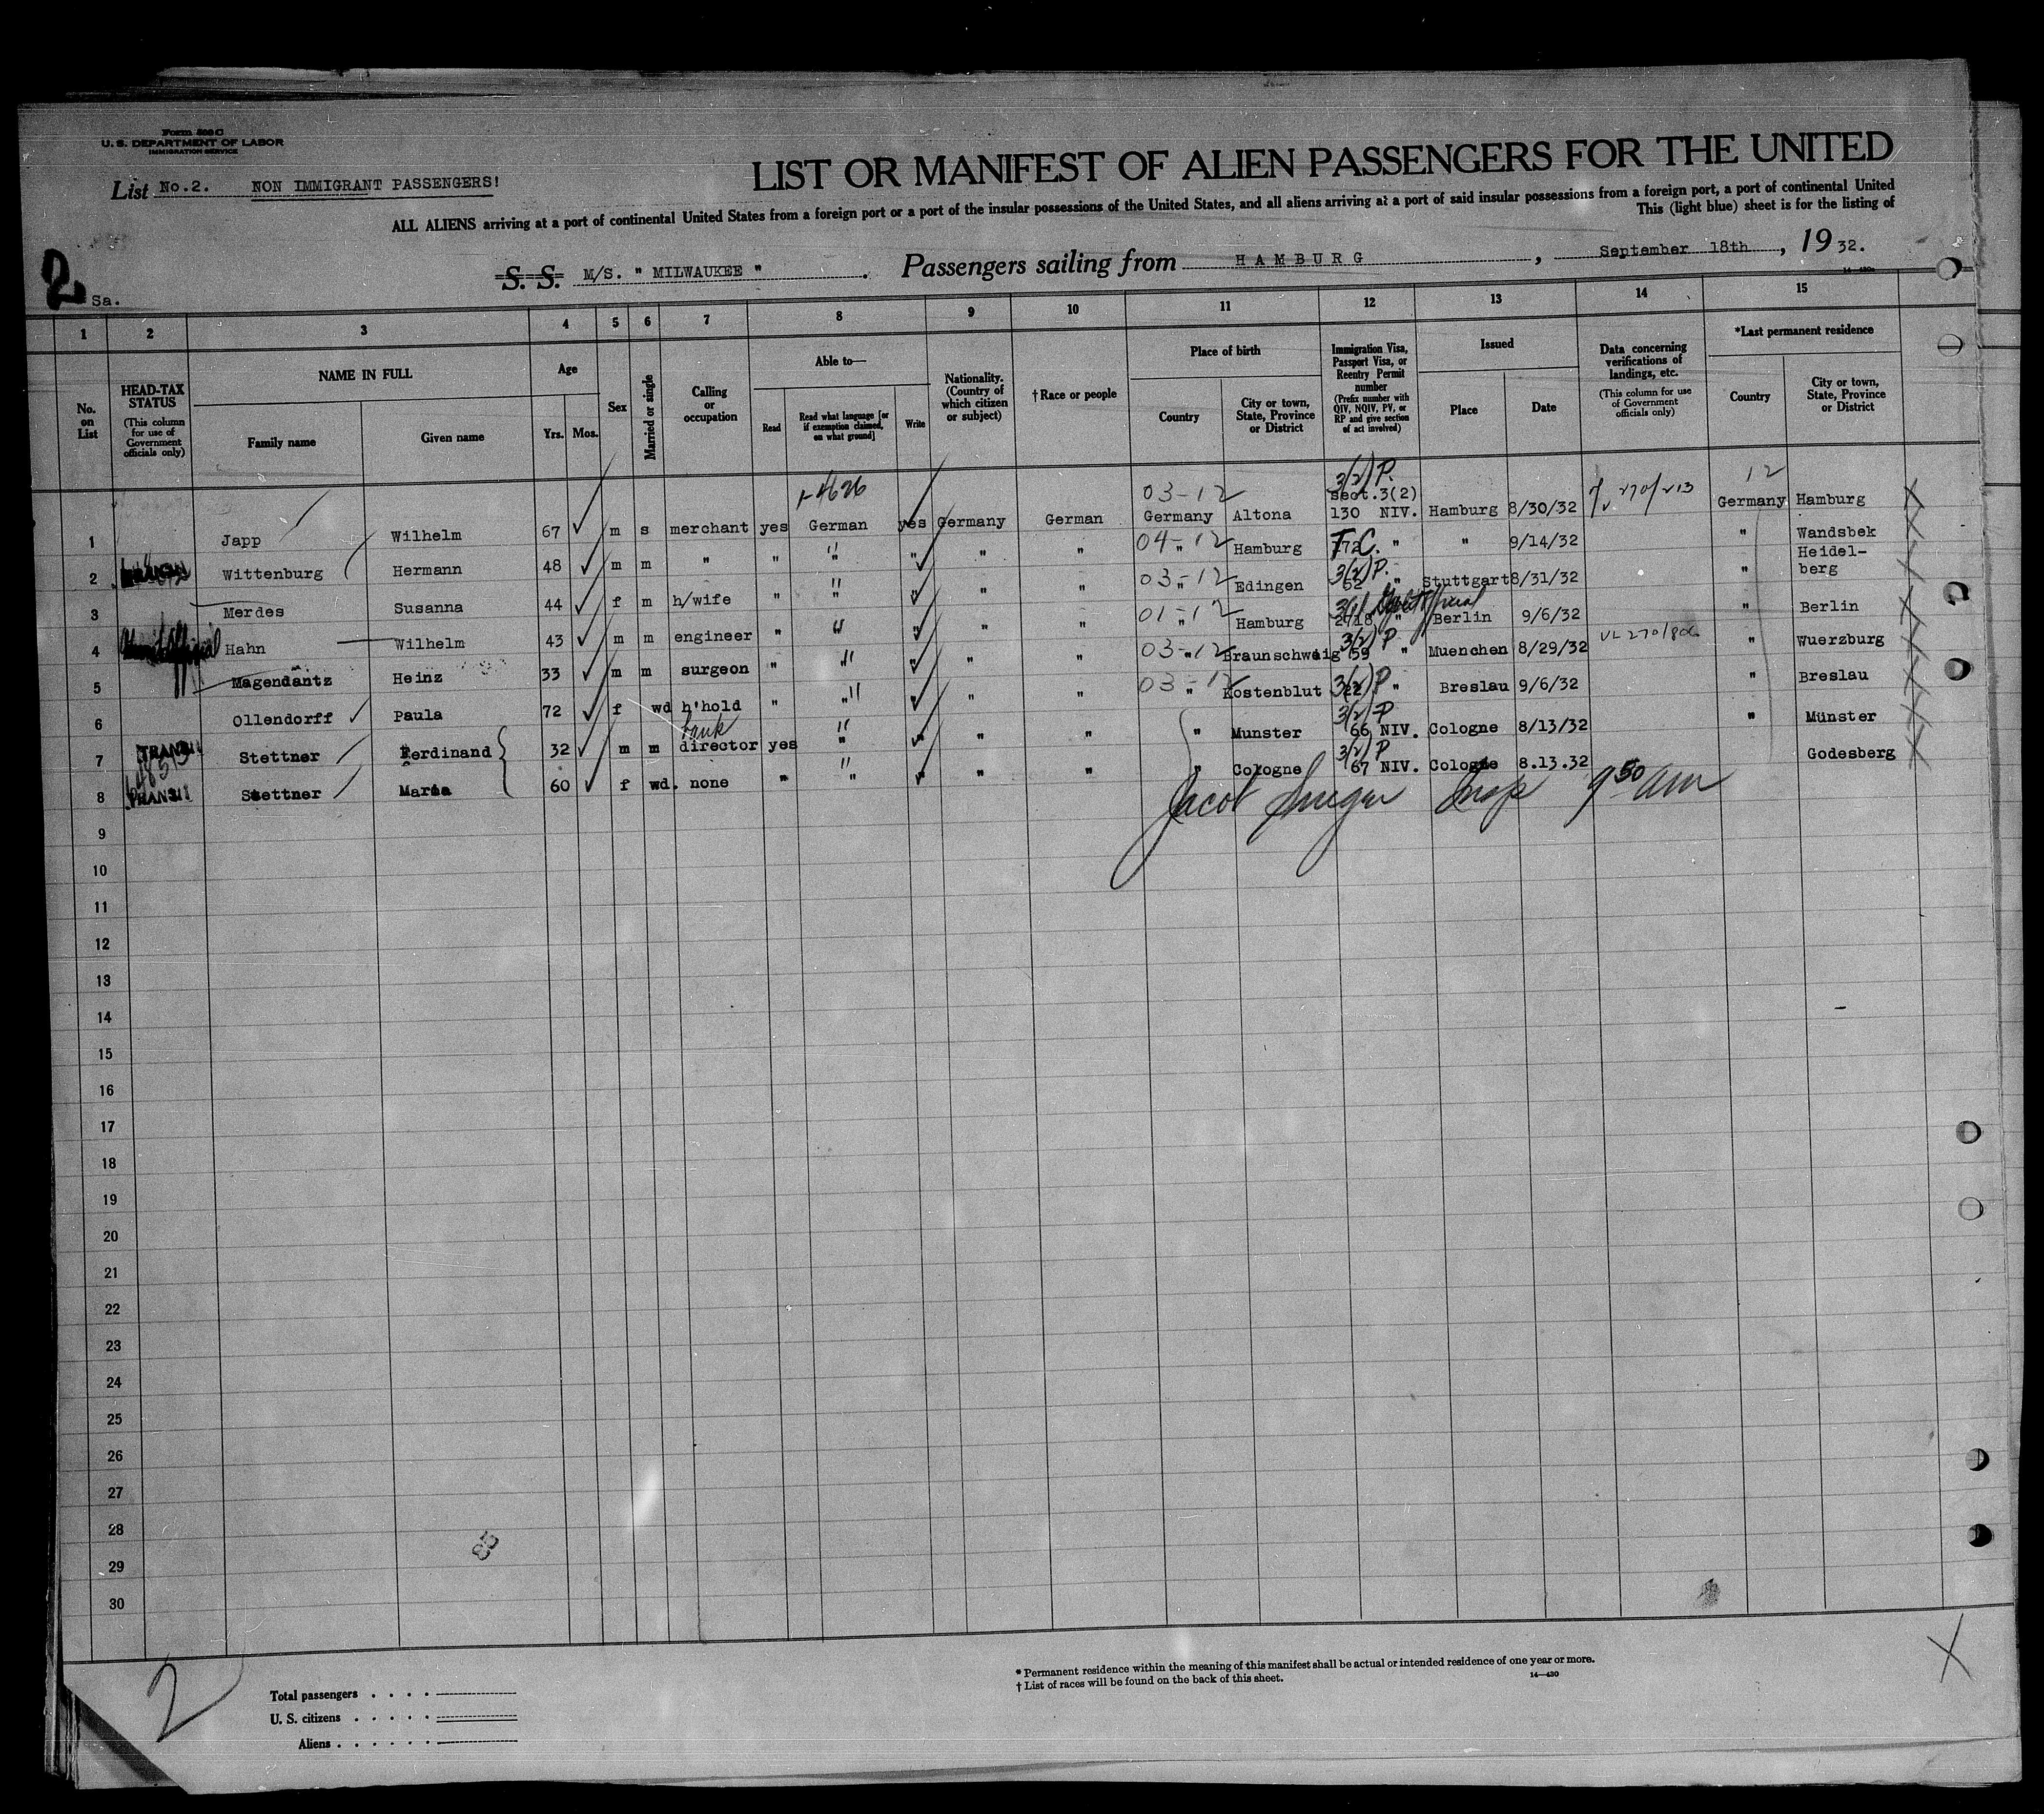 Form 500 C
U. S. DEPARTMENT OF LABOR
IMMIGRATION SERVICE
List No.2. NON IMMIGRANT PASSENGERS!
LIST OR MANIFEST OF ALIEN PASSENGERS FOR THE UNITED
ALL ALIENS arriving at a port of continental United States from a foreign port or a port of the insular possessions of the United States, and all aliens arriving at a port of said insular possessions from a foreign port, a port of continental United
This (light blue) sheet is for the listing of
2 Sa.
S. S. M/S. " MILWAUKEE " . Passengers sailing from HAMBURG , September 18th , 19 32.
1 2 3 4 5 6 7 8 9 10 11 12 13 14 15
No. on List
HEAD-TAX STATUS (This column for use of Government officials only)
NAME IN FULL
Family name Given name
Age
Yrs. Mos.
Sex
Married or single
Calling or occupation
Able to—
Read
Read what language [or if exemption claimed, on what ground]
Write
Nationality. (Country of which citizen or subject)
†Race or people
Place of birth
Country
City or town, State, Province or District
Immigration Visa, Passport Visa, or Reentry Permit number (Prefix number with QIV, NQIV, PV, or RP and give section of act involved)
Issued
Place Date
Data concerning verifications of landings, etc. (This column for use of Government officials only)
*Last permanent residence
Country
City or town, State, Province or District
1-4626 03-12 3(2) P. 12
sect.3(2)
1 Japp Wilhelm 67 m s merchant yes German yes Germany German Germany Altona 130 NIV. Hamburg 8/30/32 270/213 Germany Hamburg
04-12 T.C.
2 Wittenburg Hermann 48 m m " " " " " " " Hamburg 172 " " 9/14/32 " Wandsbek
03-12 3(2) P.
3 Merdes Susanna 44 f m h/wife " " " " " " Edingen 52 " Stuttgart 8/31/32 " Heidel-
berg
01-12 3(1) Govt Official
4 Hahn Wilhelm 43 m m engineer " " " " " " Hamburg 2718 " Berlin 9/6/32 " Berlin
03-12 3(2) P
5 Magendantz Heinz 33 m m surgeon " " " " " " Braunschweig 59 " Muenchen 8/29/32 VL 270/806 " Wuerzburg
03-12 3(2) P
6 Ollendorff Paula 72 f wd h'hold " " " " " " Kostenblut 22 " Breslau 9/6/32 " Breslau
bank 3(2) P
7 TRANSIT Stettner Ferdinand 32 m m director yes " " " " " Munster 66 NIV. Cologne 8/13/32 " Münster
3(2) P
8 TRANSIT Stettner Maria 60 f wd. none " " " " " " Cologne 67 NIV. Cologne 8.13.32 Godesberg
Jacob Insp 9 50 am
9
10
11
12
13
14
15
16
17
18
19
20
21
22
23
24
25
26
27
28
29
30
2
* Permanent residence within the meaning of this manifest shall be actual or intended residence of one year or more.
† List of races will be found on the back of this sheet. 14—430
Total passengers
U. S. citizens
Aliens